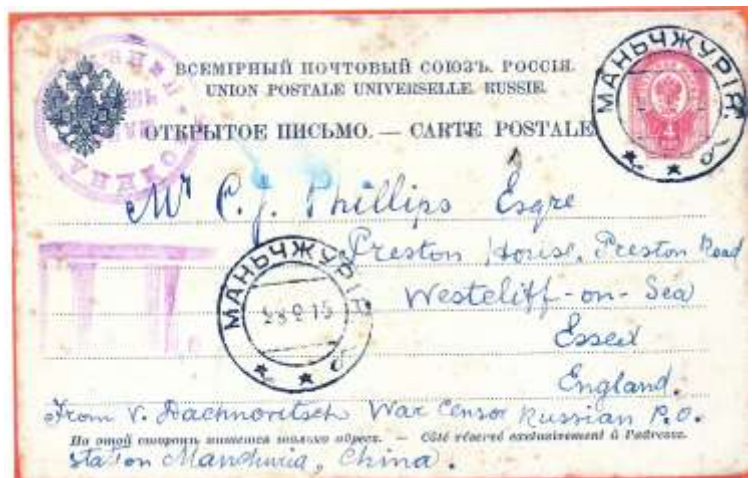 ВСЕМІРНЫЙ ПОЧТОВЫЙ СОЮЗЪ. РОССІЯ.
UNION POSTALE UNIVERSELLE. RUSSIE.
ОТКРЫТОЕ ПИСЬМО. — CARTE POSTALE
МАНЬЧЖУРІЯ
4
Mr C. J. Phillips Esqre
Preston House, Preston Road
Westcliff-on-Sea
Essex
England.
МАНЬЧЖУРІЯ
15
П.
From V. War Censor Russian P.O.
На этой сторонѣ пишется только адресъ. — Côté réservé exclusivement à l'adresse.
station Manchuria, China.